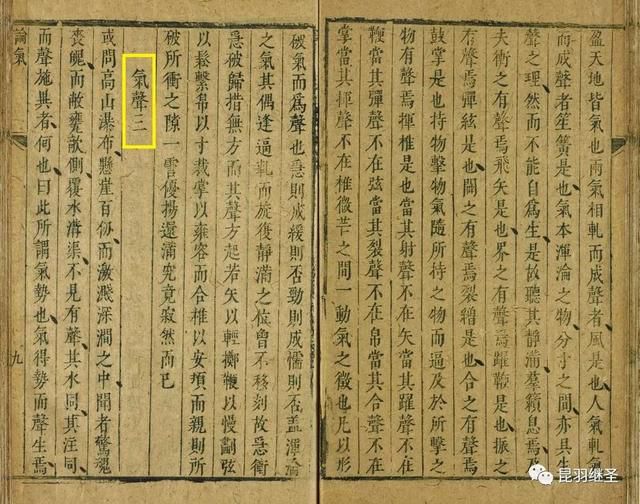 盈天地皆氣也兩氣相軋而成聲者風是也人氣軋氣
而成聲者笙簧是也氣本渾淪之物分寸之間亦具生
聲之理然而不能自爲生是故聽其靜滿羣籟息焉及
夫衝之有聲焉飛矢是也界之有聲焉躍鞭是也振之
有聲焉彈絃是也闢之有聲焉裂繒是也合之有聲焉
鼓掌是也持物擊物氣隨所持之物而逼及於所擊之
物有聲焉揮椎是也當其射聲不在矢當其躍聲不在
鞭當其彈聲不在弦當其裂聲不在帛當其合聲不在
掌當其揮聲不在椎微芒之間一動氣之徵也凡以形
破氣而爲聲也急則成緩則否勁則成懦則否蓋渾淪
之氣其偶逢逼軋而旋復靜滿之位曾不移刻故急衝
急破歸措無方而其聲方起若矢以輕擲鞭以慢劃弦
以鬆繫帛以寸裁掌以雍容而合椎以安頓而親則所
破所衝之隙一霎優揚還滿究竟寂然而已
氣聲三
或問高山瀑布懸崖百仞而激濺深澗之中聞者驚魂
喪魄而敝甕欹側覆水溝渠不見有聲其水同其注同
而聲施異者何也曰此所謂氣勢也氣得勢而聲生焉
論氣 九
昆羽继圣